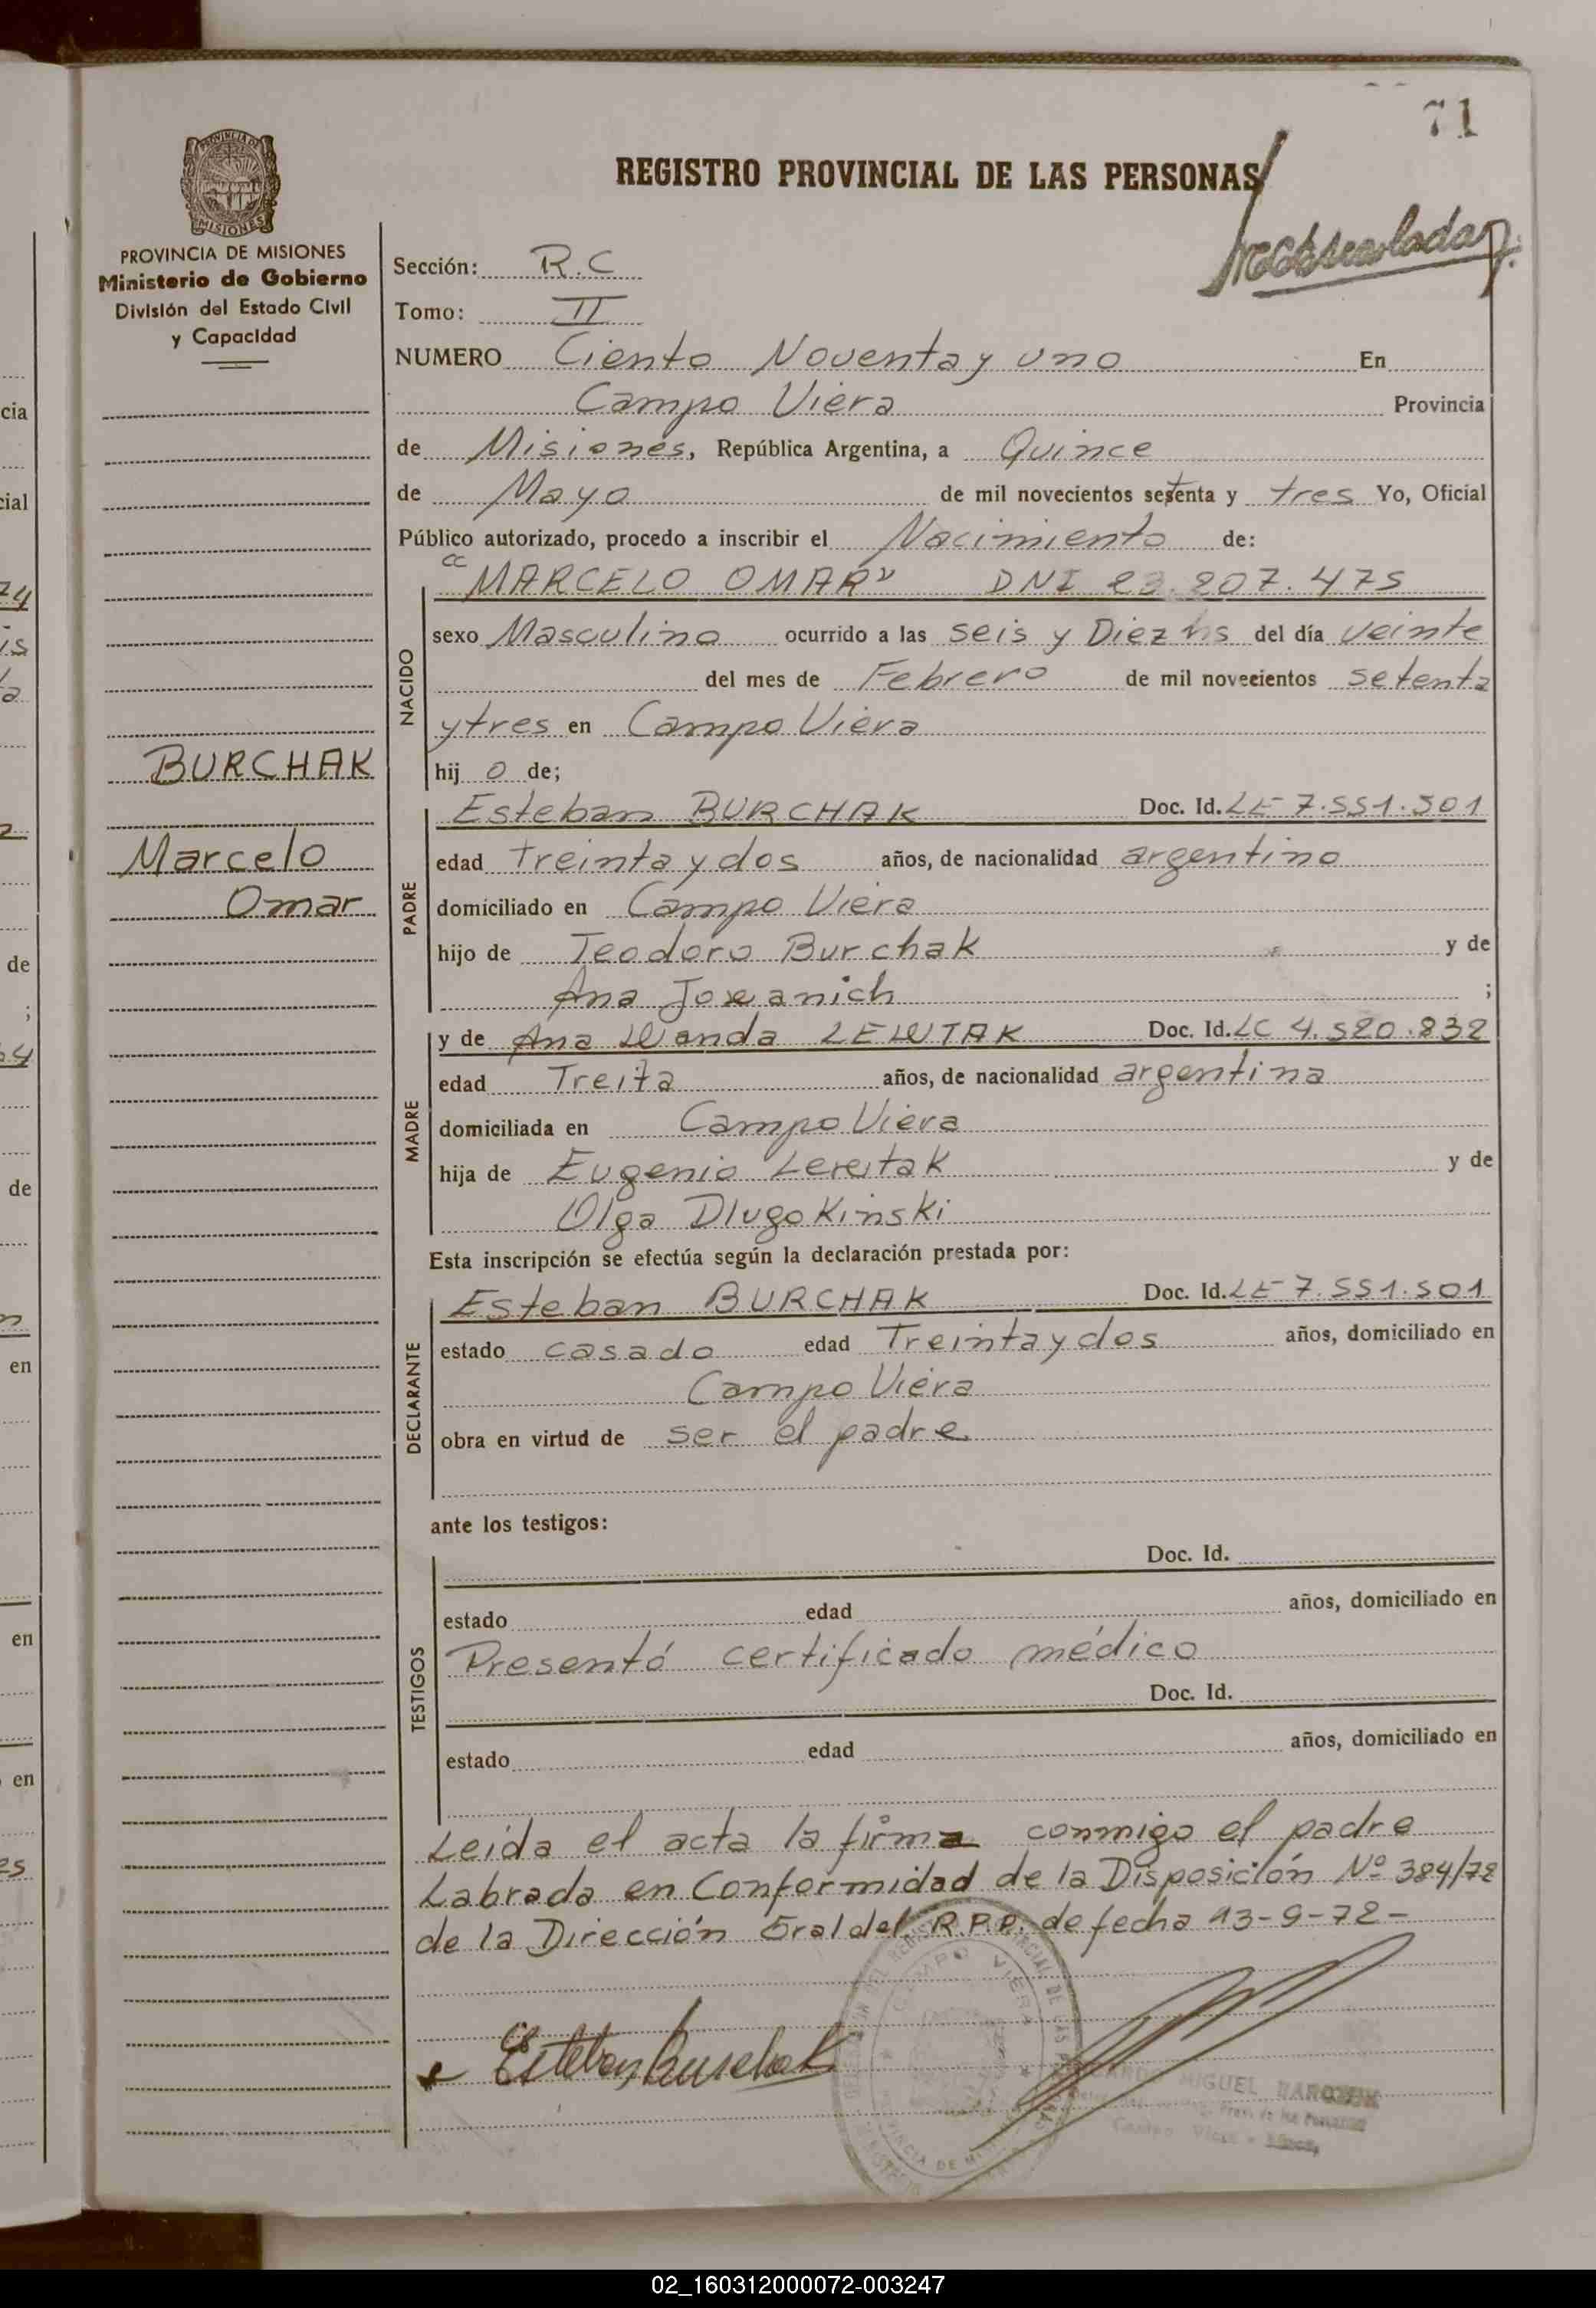 71
REGISTRO PROVINCIAL DE LAS PERSONAS
PROVINCIA DE MISIONES
Ministerio de Gobierno
División del Estado Civil
y Capacidad
Sección: R.C
Tomo: II
NUMERO Ciento Noventa y uno En
Campo Viera Provincia
de Misiones, República Argentina, a Quince
de Mayo de mil novecientos setenta y tres Yo, Oficial
Público autorizado, procedo a inscribir el Nacimiento de:
"MARCELO OMAR" DNI 23.207.475
NACIDO
sexo Masculino ocurrido a las seis y Diez hs del día veinte
del mes de Febrero de mil novecientos setenta
y tres en Campo Viera
hij o de;
BURCHAK
Marcelo
Omar
PADRE
Esteban BURCHAK Doc. Id. LE 7.551.501
edad Treinta y dos años, de nacionalidad argentino
domiciliado en Campo Viera
hijo de Teodoro Burchak y de
Ana ;
MADRE
y de Ana Wanda LEWTAK Doc. Id. LC 4.520.832
edad Treita años, de nacionalidad argentina
domiciliada en Campo Viera
hija de Eugenio y de
Olga Dlugokinski
Esta inscripción se efectúa según la declaración prestada por:
DECLARANTE
Esteban BURCHAK Doc. Id. LE 7.551.501
estado casado edad Treinta y dos años, domiciliado en
Campo Viera
obra en virtud de ser el padre
ante los testigos:
TESTIGOS
Doc. Id.
estado edad años, domiciliado en
Presentó certificado médico
Doc. Id.
estado edad años, domiciliado en
Leida el acta la firma conmigo el padre
Labrada en Conformidad de la Disposición Nº 384/72
de la Dirección Gral del R.P.P. de fecha 13-9-72-
Esteban Burchak
CAMPO VIERA
MIGUEL
02_160312000072-003247